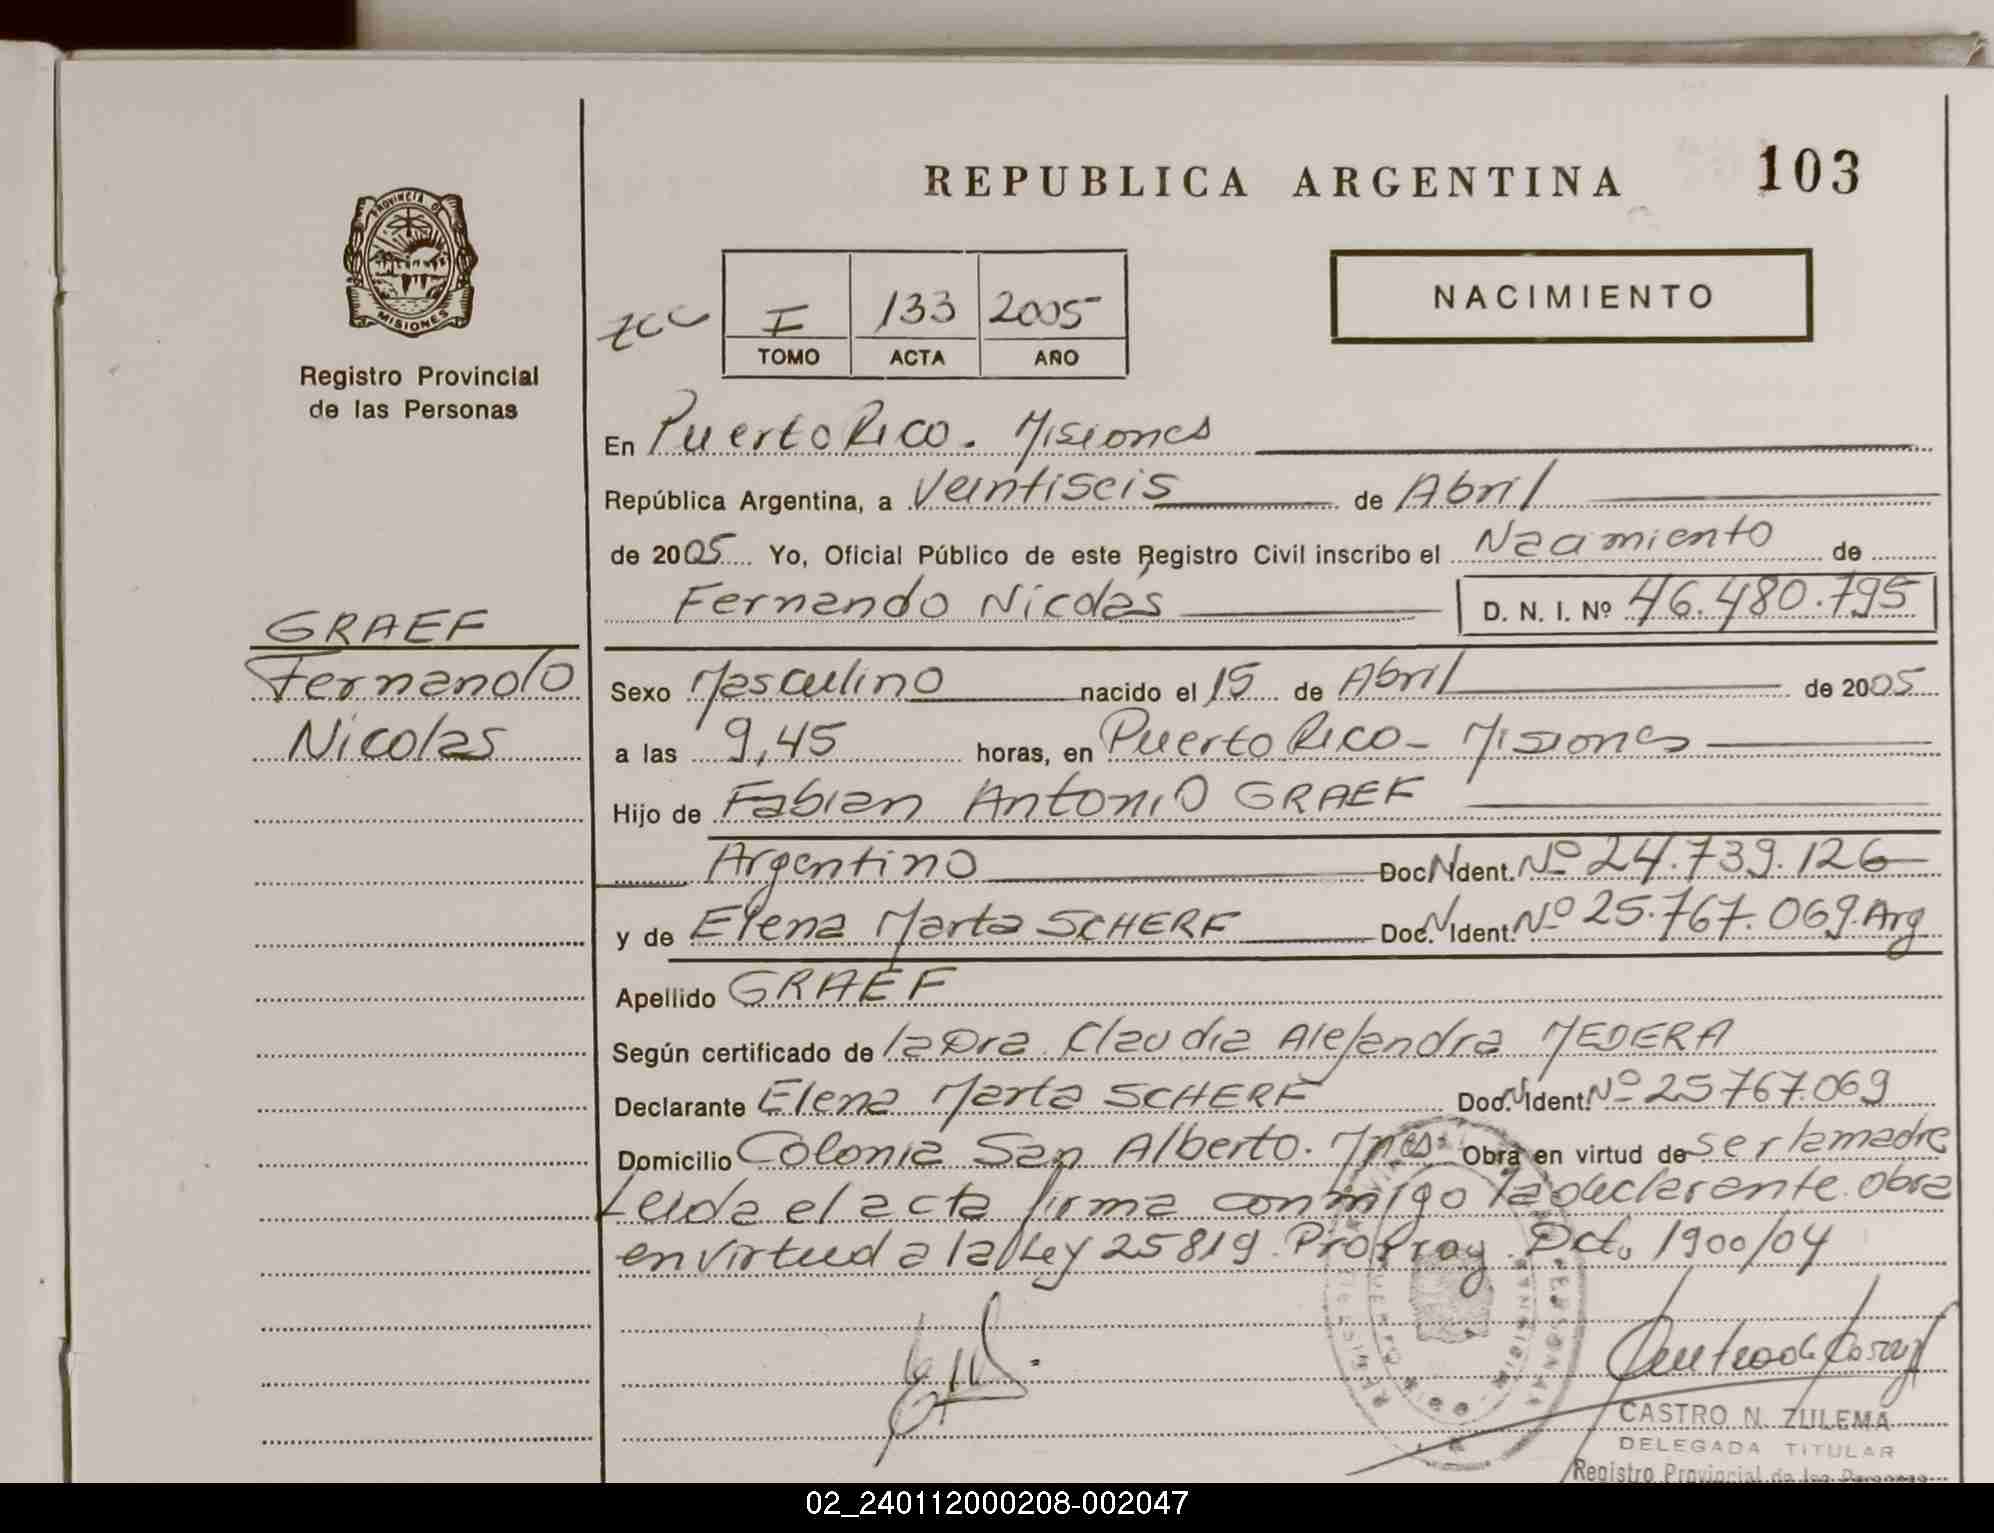 REPUBLICA ARGENTINA 103
PROVINCIA DE
MISIONES
Registro Provincial
de las Personas
I 133 2005
TOMO ACTA AÑO
NACIMIENTO
En Puerto Rico. Misiones
República Argentina, a Veintiseis de Abril
de 2005 Yo, Oficial Público de este Registro Civil inscribo el Nacimiento de
Fernando Nicolás D. N. I. Nº 46.480.795
GRAEF
Fernando
Nicolas
Sexo Masculino nacido el 15 de Abril de 2005
a las 9,45 horas, en Puerto Rico - Misiones
Hijo de Fabian Antonio GRAEF
Argentino Doc N Ident. Nº 24.739.126
y de Elena Marta SCHERF Doc. N Ident. Nº 25.767.069. Arg
Apellido GRAEF
Según certificado de la Dra. Claudia Alejandra MEDERA
Declarante Elena Marta SCHERF Doc. N Ident. Nº 25767.069
Domicilio Colonia San Alberto. Mnes Obra en virtud de ser la madre
Leida el acta firma conmigo la declarante. Obra
en virtud a la Ley 25819. Dct. 1900/04
CASTRO N. ZULEMA
DELEGADA TITULAR
Registro Provincial de las Personas
02_240112000208-002047